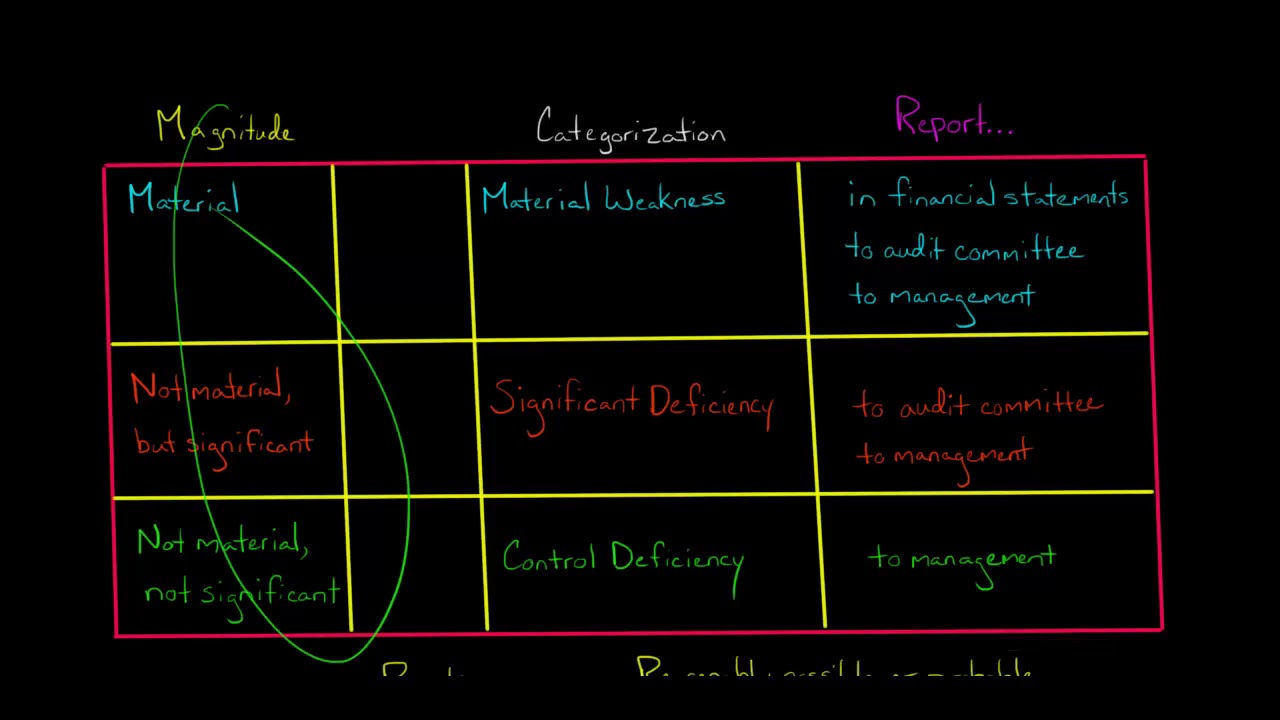 Magnitude
Categorization
Report...
Material
Material Weakness
in financial statements
to audit committee
to management
Not material,
but significant
Significant Deficiency
to audit committee
to management
Not material,
not significant
Control Deficiency
to management